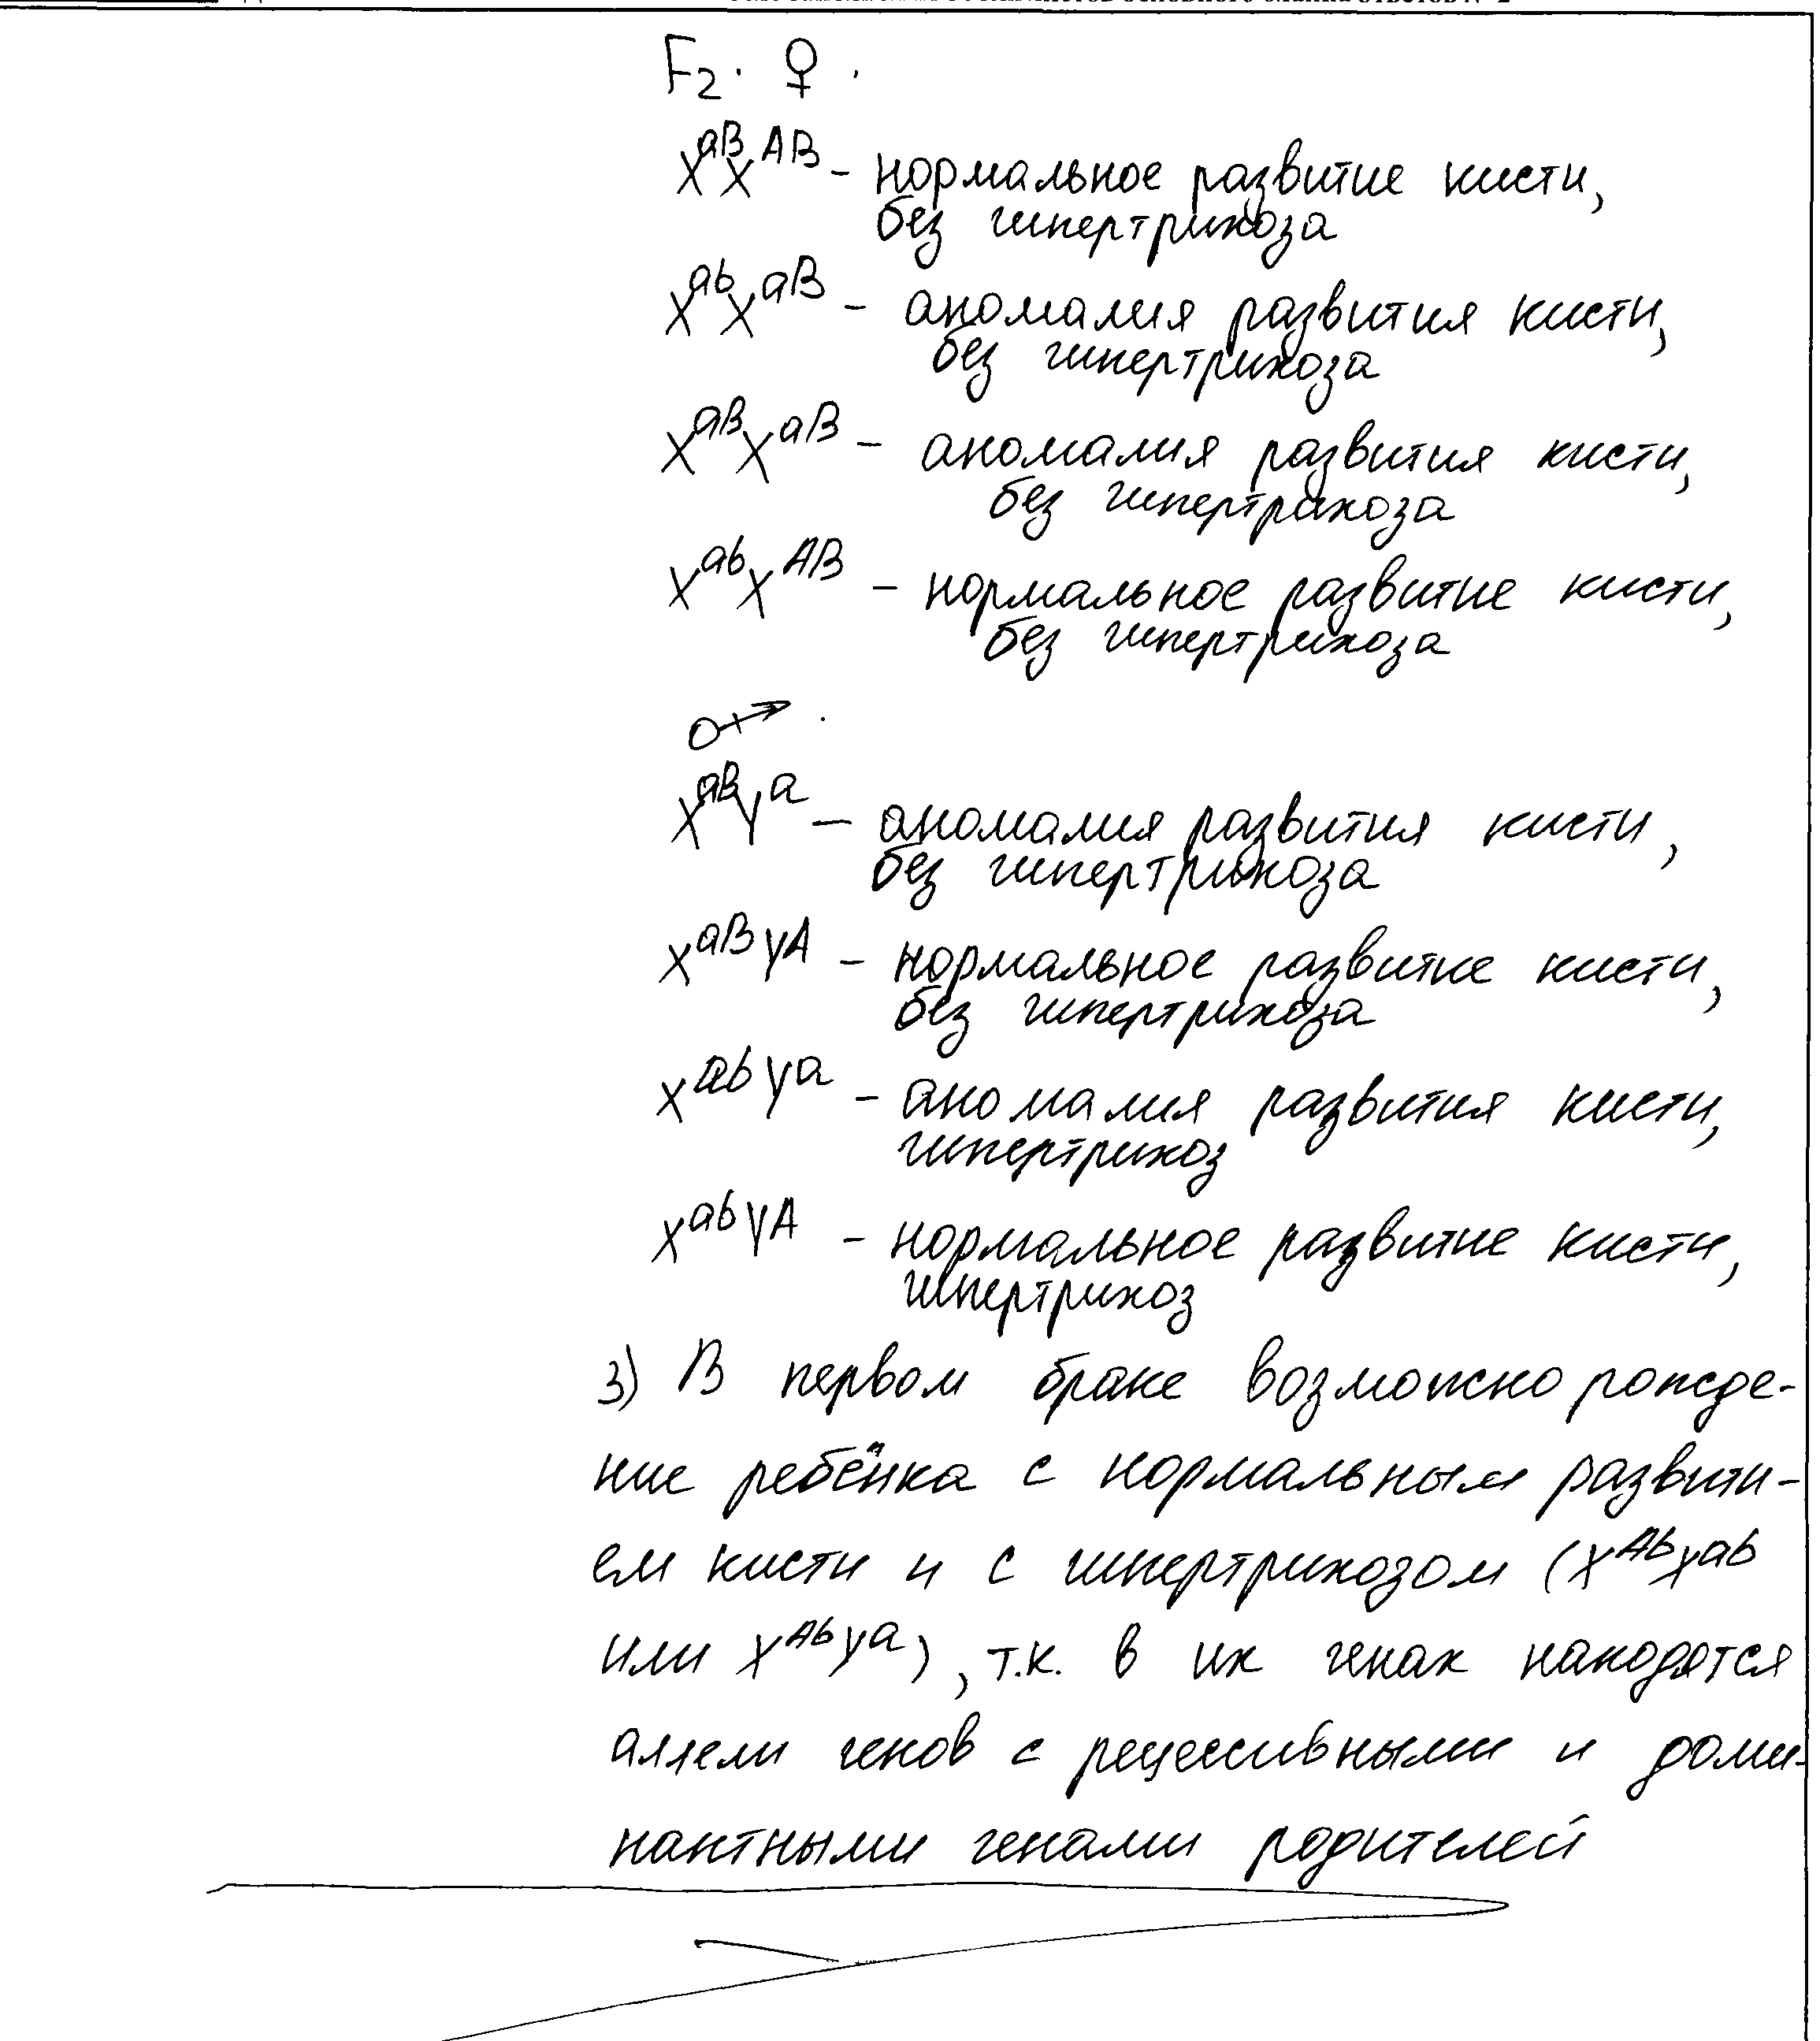 F₂. ♀.
XᵃᴮXᴬᴮ – нормальное развитие кисти,
без гипертрихоза
XᵃᵇXᵃᴮ – аномалия развития кисти,
без гипертрихоза
XᵃᴮXᵃᴮ – аномалия развития кисти,
без гипертрихоза
XᵃᵇXᴬᴮ – нормальное развитие кисти,
без гипертрихоза
♂.
XᵃᴮYᵃ – аномалия развития кисти,
без гипертрихоза
XᵃᴮYᴬ – нормальное развитие кисти,
без гипертрихоза
XᵃᵇYᵃ – аномалия развития кисти,
гипертрихоз
XᵃᵇYᴬ – нормальное развитие кисти,
гипертрихоз
3) В первом браке возможно рожде-
ние ребёнка с нормальным развити-
ем кисти и с гипертрихозом (XᴬᵇXᵃᵇ
или XᴬᵇYᵃ), т.к. в их генах находятся
аллели генов с рецессивными и доми-
нантными генами родителей